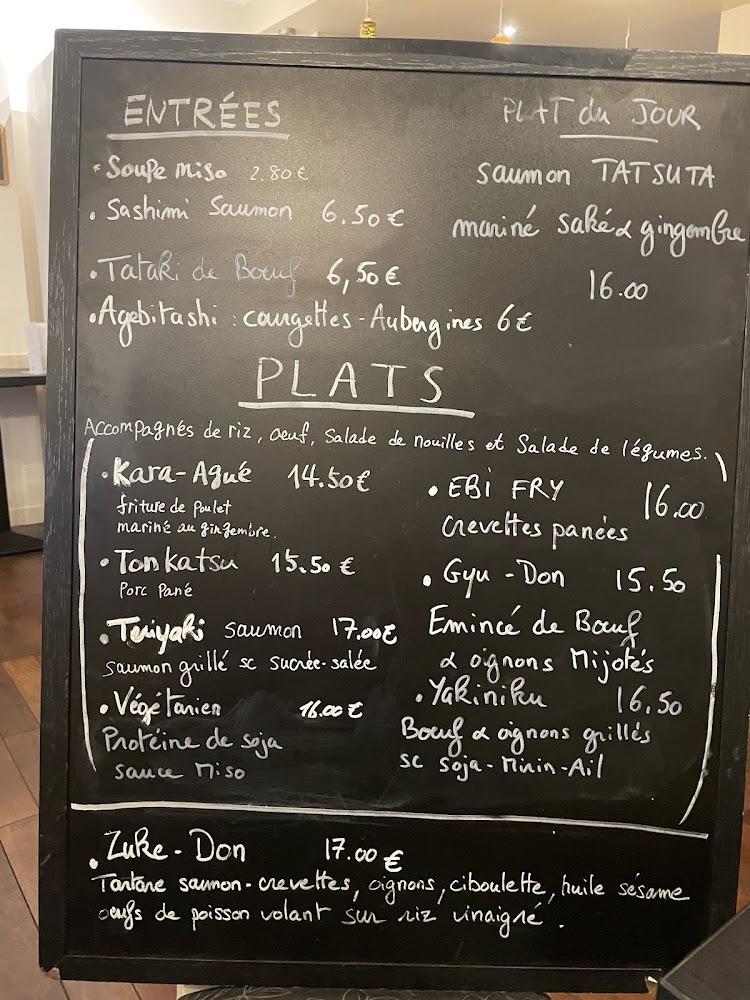 ENTRÉES
• Soupe miso 2.80€
• Sashimi Saumon 6.50€
• Tataki de Bœuf 6,50€
• Agebitashi : courgettes - Aubergines 6€
PLAT du JOUR
saumon TATSUTA
mariné saké & gingembre
16.00
PLATS
Accompagnés de riz, œuf, Salade de nouilles et Salade de légumes.
• Kara-Agué 14.50€
friture de Poulet
mariné au gingembre.
• Tonkatsu 15.50€
Porc Pané
• Teriyaki saumon 17.00€
saumon grillé sc sucrée-salée
• Végétarien 16.00€
Protéine de soja
sauce Miso
• EBI FRY 16.00
Crevettes panées
• Gyu-Don 15.50
Emincé de Bœuf
& oignons Mijotés
• Yakiniku 16.50
Bœuf & oignons grillés
sc soja-Mirin-Ail
• Zuke-Don 17.00€
Tartare saumon-crevettes, oignons, ciboulette, huile sésame
œufs de poisson volant sur riz vinaigré.